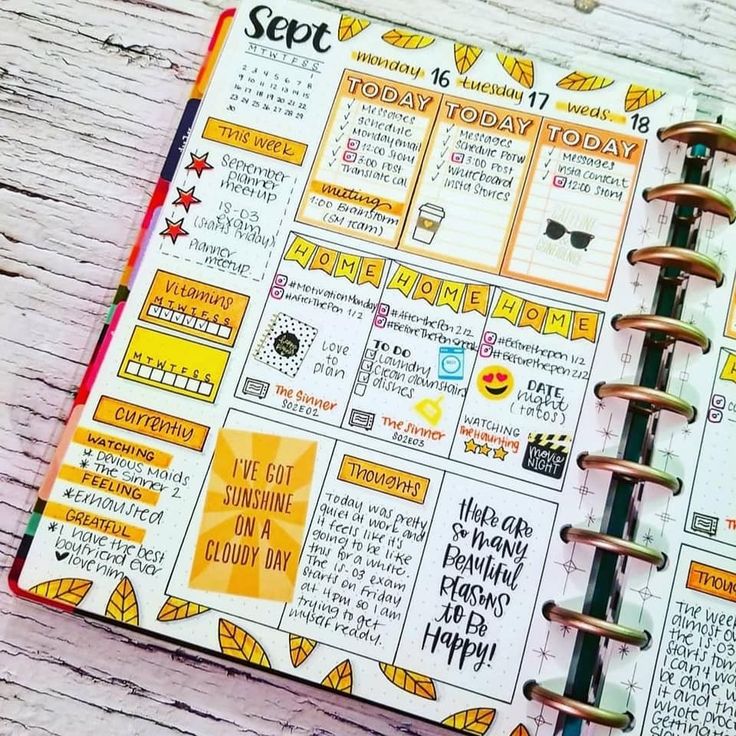 Sept
M T W T F S S
1
2 3 4 5 6 7 8
9 10 11 12 13 14 15
16 17 18 19 20 21 22
23 24 25 26 27 28 29
30
This week
September
planner
meetup
15-03
exam
(starts friday)
Planner
meetup
Vitamins
M T W T F S S
M T W T F S S
Currently
WATCHING
* Devious Maids
* The Sinner 2
FEELING
* Exhausted
GREATFUL
* I have the best
boyfriend ever
♥ love him
monday 16
TODAY
✓ Messages
✓ schedule
✓ Monday email
✓ 12:00 Story
✓ 3:00 Post
✓ Translate Cal
meeting
1:00 Brainstorm
(SM Team)
tuesday 17
TODAY
✓ Messages
✓ schedule POTW
✓ 3:00 Post
✓ whiteboard
✓ Insta Stories
weds. 18
TODAY
✓ Messages
✓ insta consent
✓ 12:00 Story
CONFIDENCE
HOME
#MotivationMonday
#AfterThePen 1/2
happy
Love
to
plan
The Sinner
S02E02
HOME
#AfterthePen 2/2
#BeforeThePen Sneak
TO DO
laundry
clean downstairs
dishes
The Sinner
S02E03
HOME
#BeforethePen 1/2
#Beforethepen 2/2
DATE
night
(tatos)
WATCHING
The Haunting
MOVIE
NIGHT
I'VE GOT
SUNSHINE
ON A
CLOUDY DAY
Thoughts
Today was pretty
quiet at work and
it feels like it's
going to be like
this for a while.
The 15-03 exam
starts on Friday
at 4pm so I am
trying to get
myself ready.
tHeRe aRe
so many
Beautiful
Reasons
to Be
Happy!
Thou
The week
almost ov
the 15-03
starts tom
I can't wa
be done w
it and th
whole proc
Getting